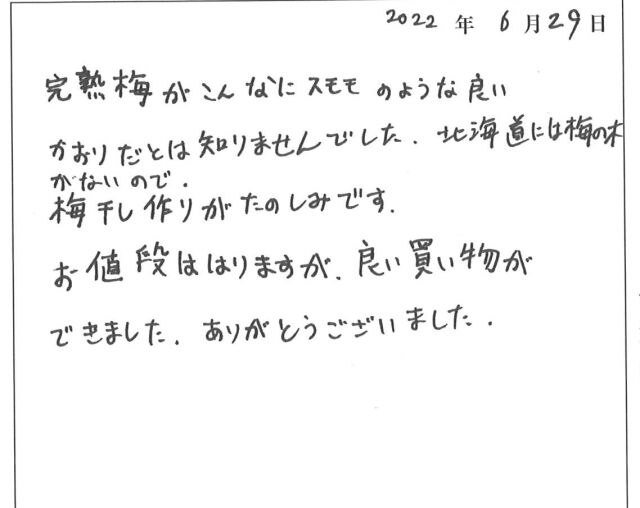 2022 年 6月29日
完熟梅がこんなにスモモのような良い
かおりだとは知りませんでした. 北海道には梅の木
がないので.
梅干し作りがたのしみです.
お値段ははりますが、良い買い物が
できました. ありがとうございました.